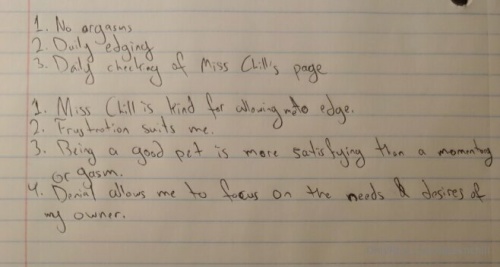 1. No orgasms
2. Daily edging
3. Daily checking of Miss Chill's page
1. Miss Chill is kind for allowing to edge.
2. Frustration suits me.
3. Being a good pet is more satisfying than a momentary
orgasm.
4. Denial allows me to focus on the needs & desires of
my owner.